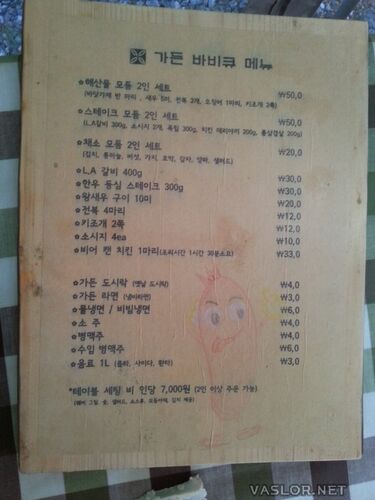 가든 바비큐 메뉴
해산물 모듬 2인 세트 ₩50,0
(바닷가재 반 마리, 새우 5미, 전복 2개, 오징어 1마리, 키조개 2쪽)
스테이크 모듬 2인 세트 ₩50,0
(L.A갈비 300g, 소시지 2개, 목필 300g, 치킨 데리야끼 200g, 통삼겹살 200g)
채소 모듬 2인 세트 ₩20,0
(김치, 통마늘, 버섯, 가지, 호박, 감자, 양파, 샐러드)
L.A 갈비 400g ₩30,0
한우 등심 스테이크 300g ₩30,0
왕새우 구이 10미 ₩20,0
전복 4마리 ₩12,0
키조개 2쪽 ₩12,0
소시지 4ea ₩10,0
비어 캔 치킨 1마리(조리시간 1시간 30분소요) ₩33,0
가든 도시락 (옛날 도시락) ₩4,0
가든 라면 (냄비라면) ₩3,0
물냉면 / 비빔냉면 ₩6,0
소 주 ₩4,0
병맥주 ₩4,0
수입 병맥주 ₩6,0
음료 1L (콜라, 사이다, 환타) ₩3,0
*테이블 세팅 비 인당 7,000원 (2인 이상 주문 가능)
(웨버 그릴, 숯, 샐러드, 소스류, 모듬야채, 김치 제공)
VASLOR.NET